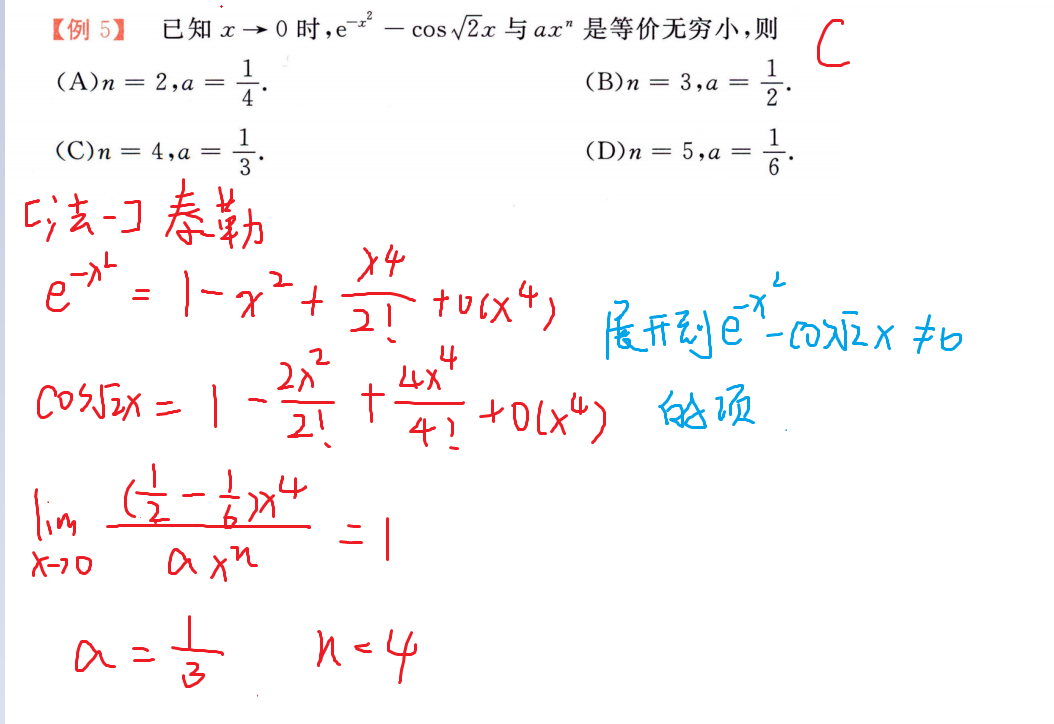 【例 5】 已知 x → 0 时,e^{-x^2} - cos √2x 与 ax^n 是等价无穷小,则 C
(A)n = 2,a = 1/4. (B)n = 3,a = 1/2.
(C)n = 4,a = 1/3. (D)n = 5,a = 1/6.
[法一] 泰勒
e^{-x^2} = 1 - x^2 + x^4/2! + o(x^4)
展开到 e^{-x^2} - cos√2x ≠ 0
cos√2x = 1 - 2x^2/2! + 4x^4/4! + o(x^4)
的项
lim x→0 (1/2 - 1/6)x^4 / ax^n = 1
a = 1/3 n = 4